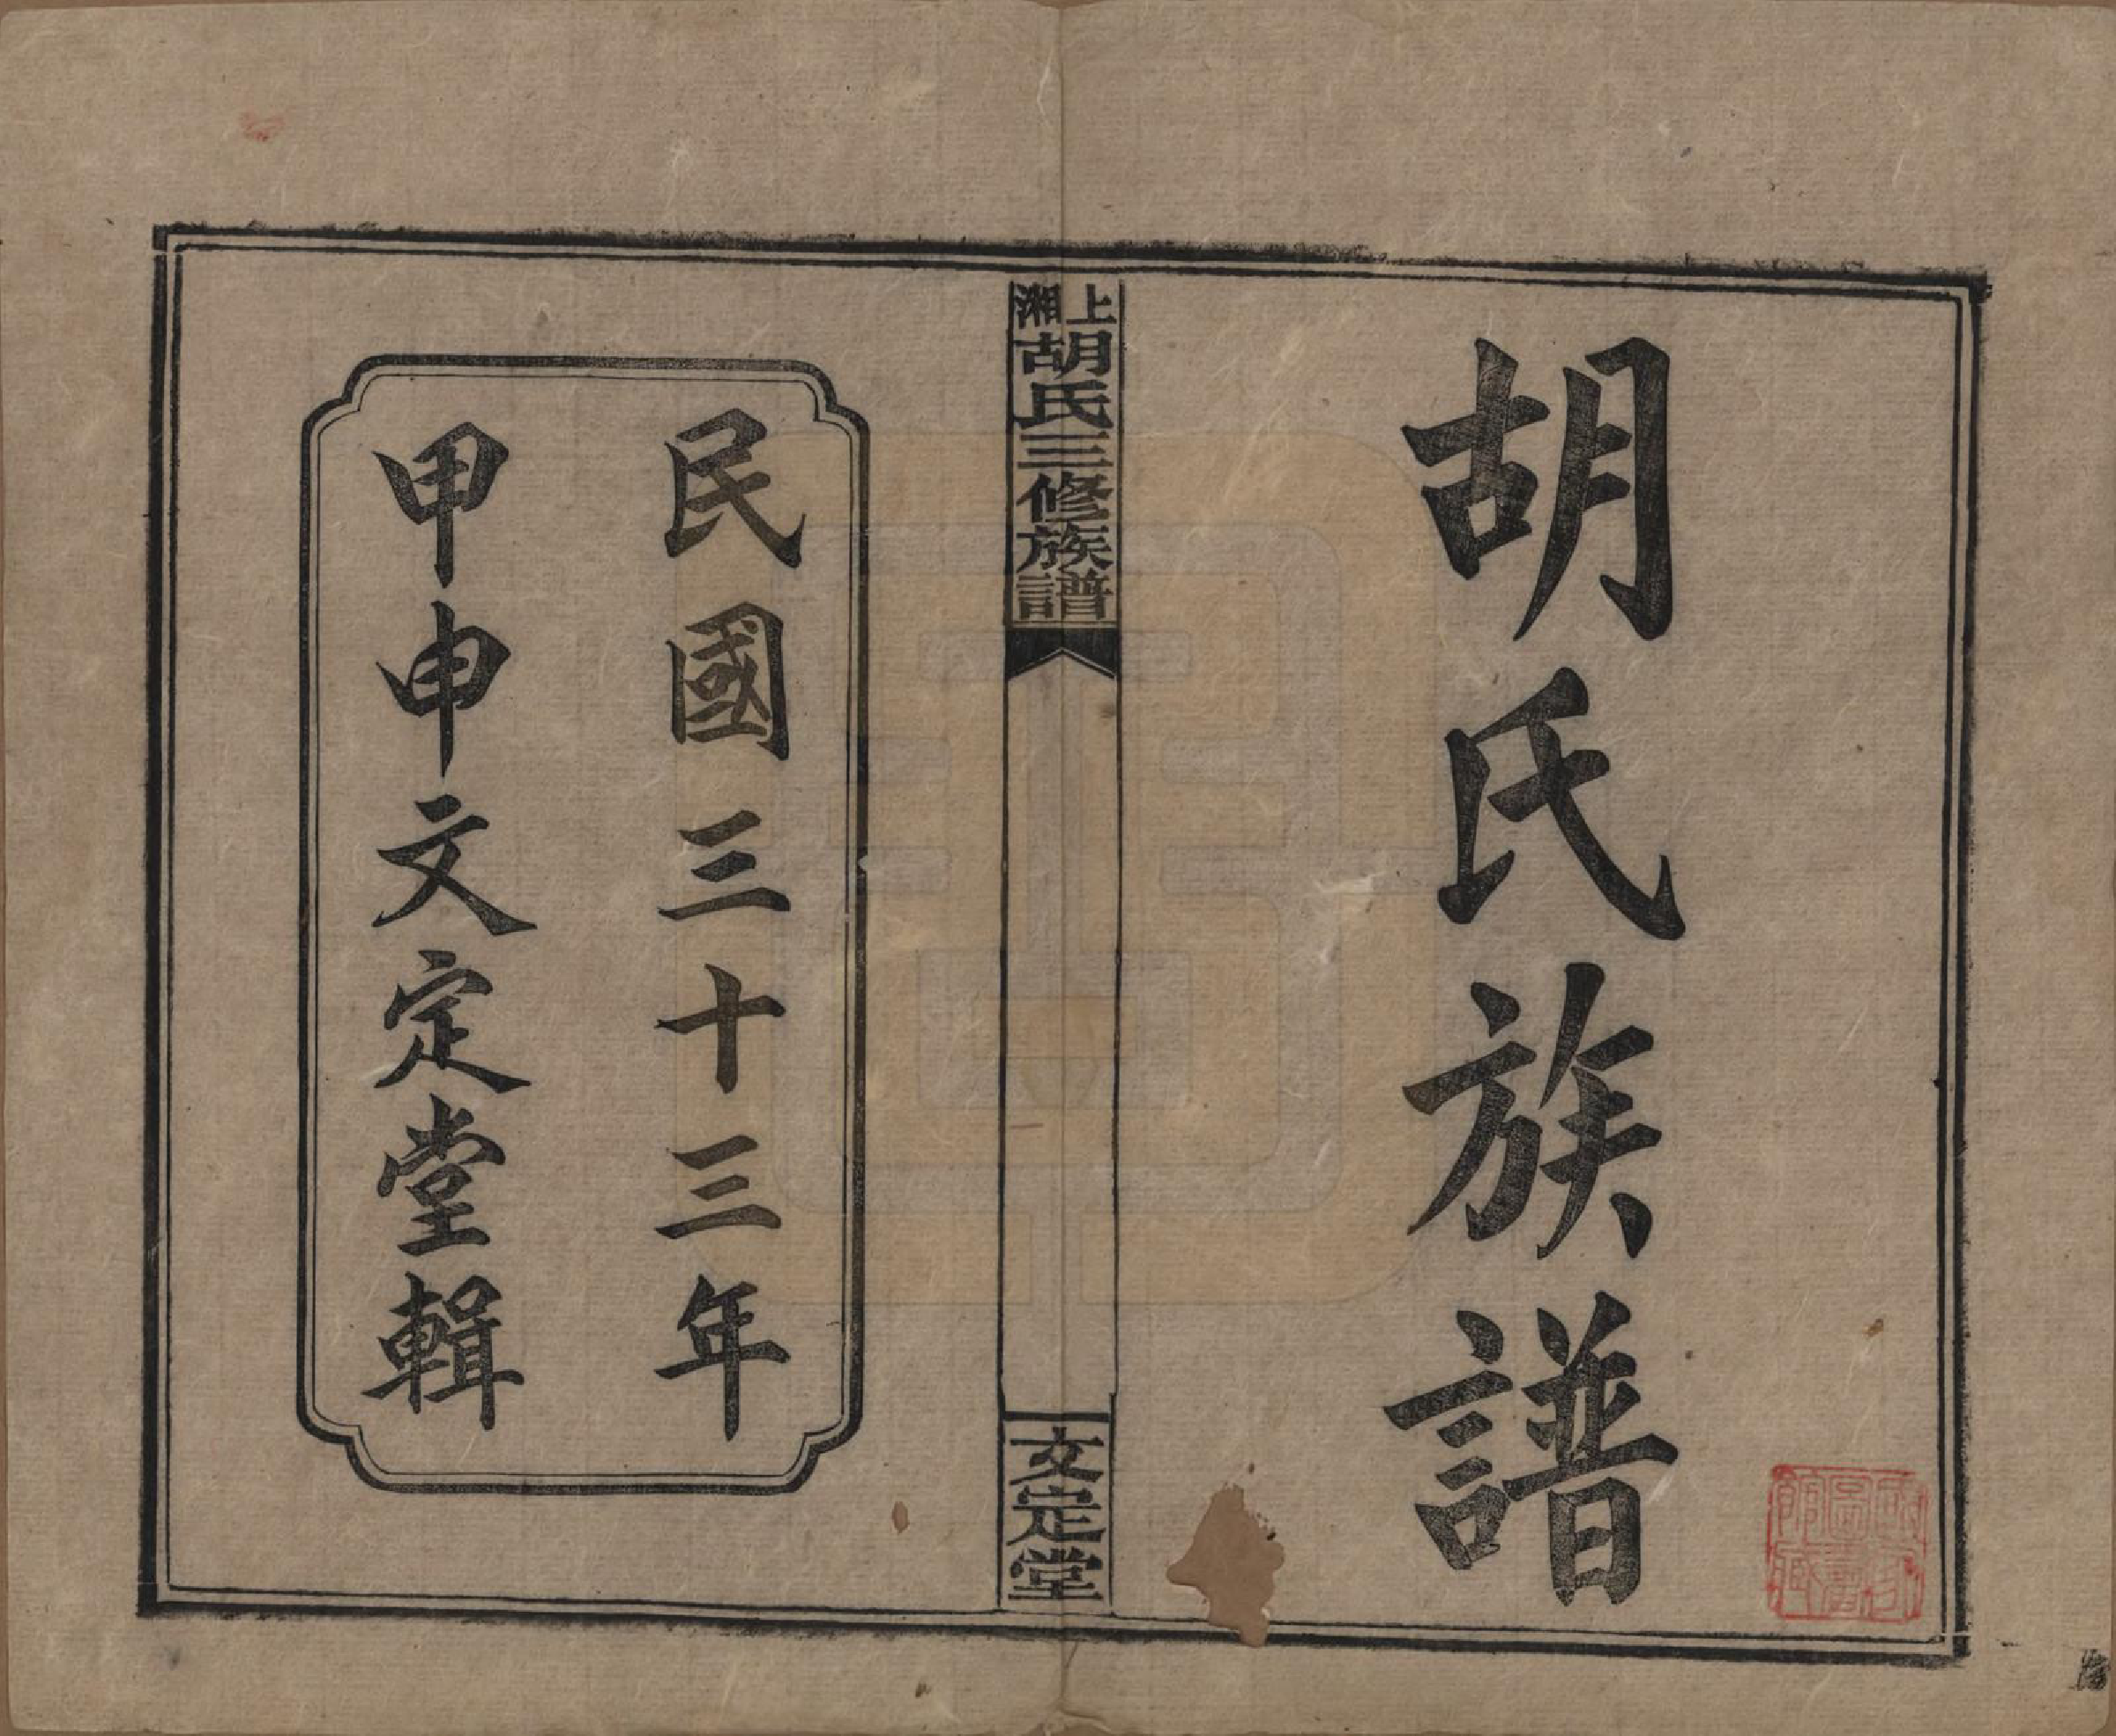 胡氏族譜
上湘胡氏三修族譜
文定堂
民國三十三年
甲申文定堂輯